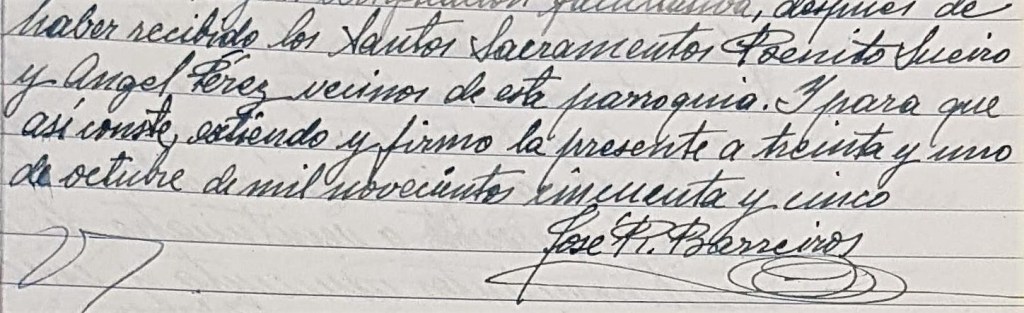 facultativa, después de
haber recibido los Santos Sacramentos Benito Sueiro
y Angel Pérez vecinos de esta parroquia. Y para que
así conste, extiendo y firmo la presente a treinta y uno
de octubre de mil novecientos cincuenta y cinco
José R. Barreiros